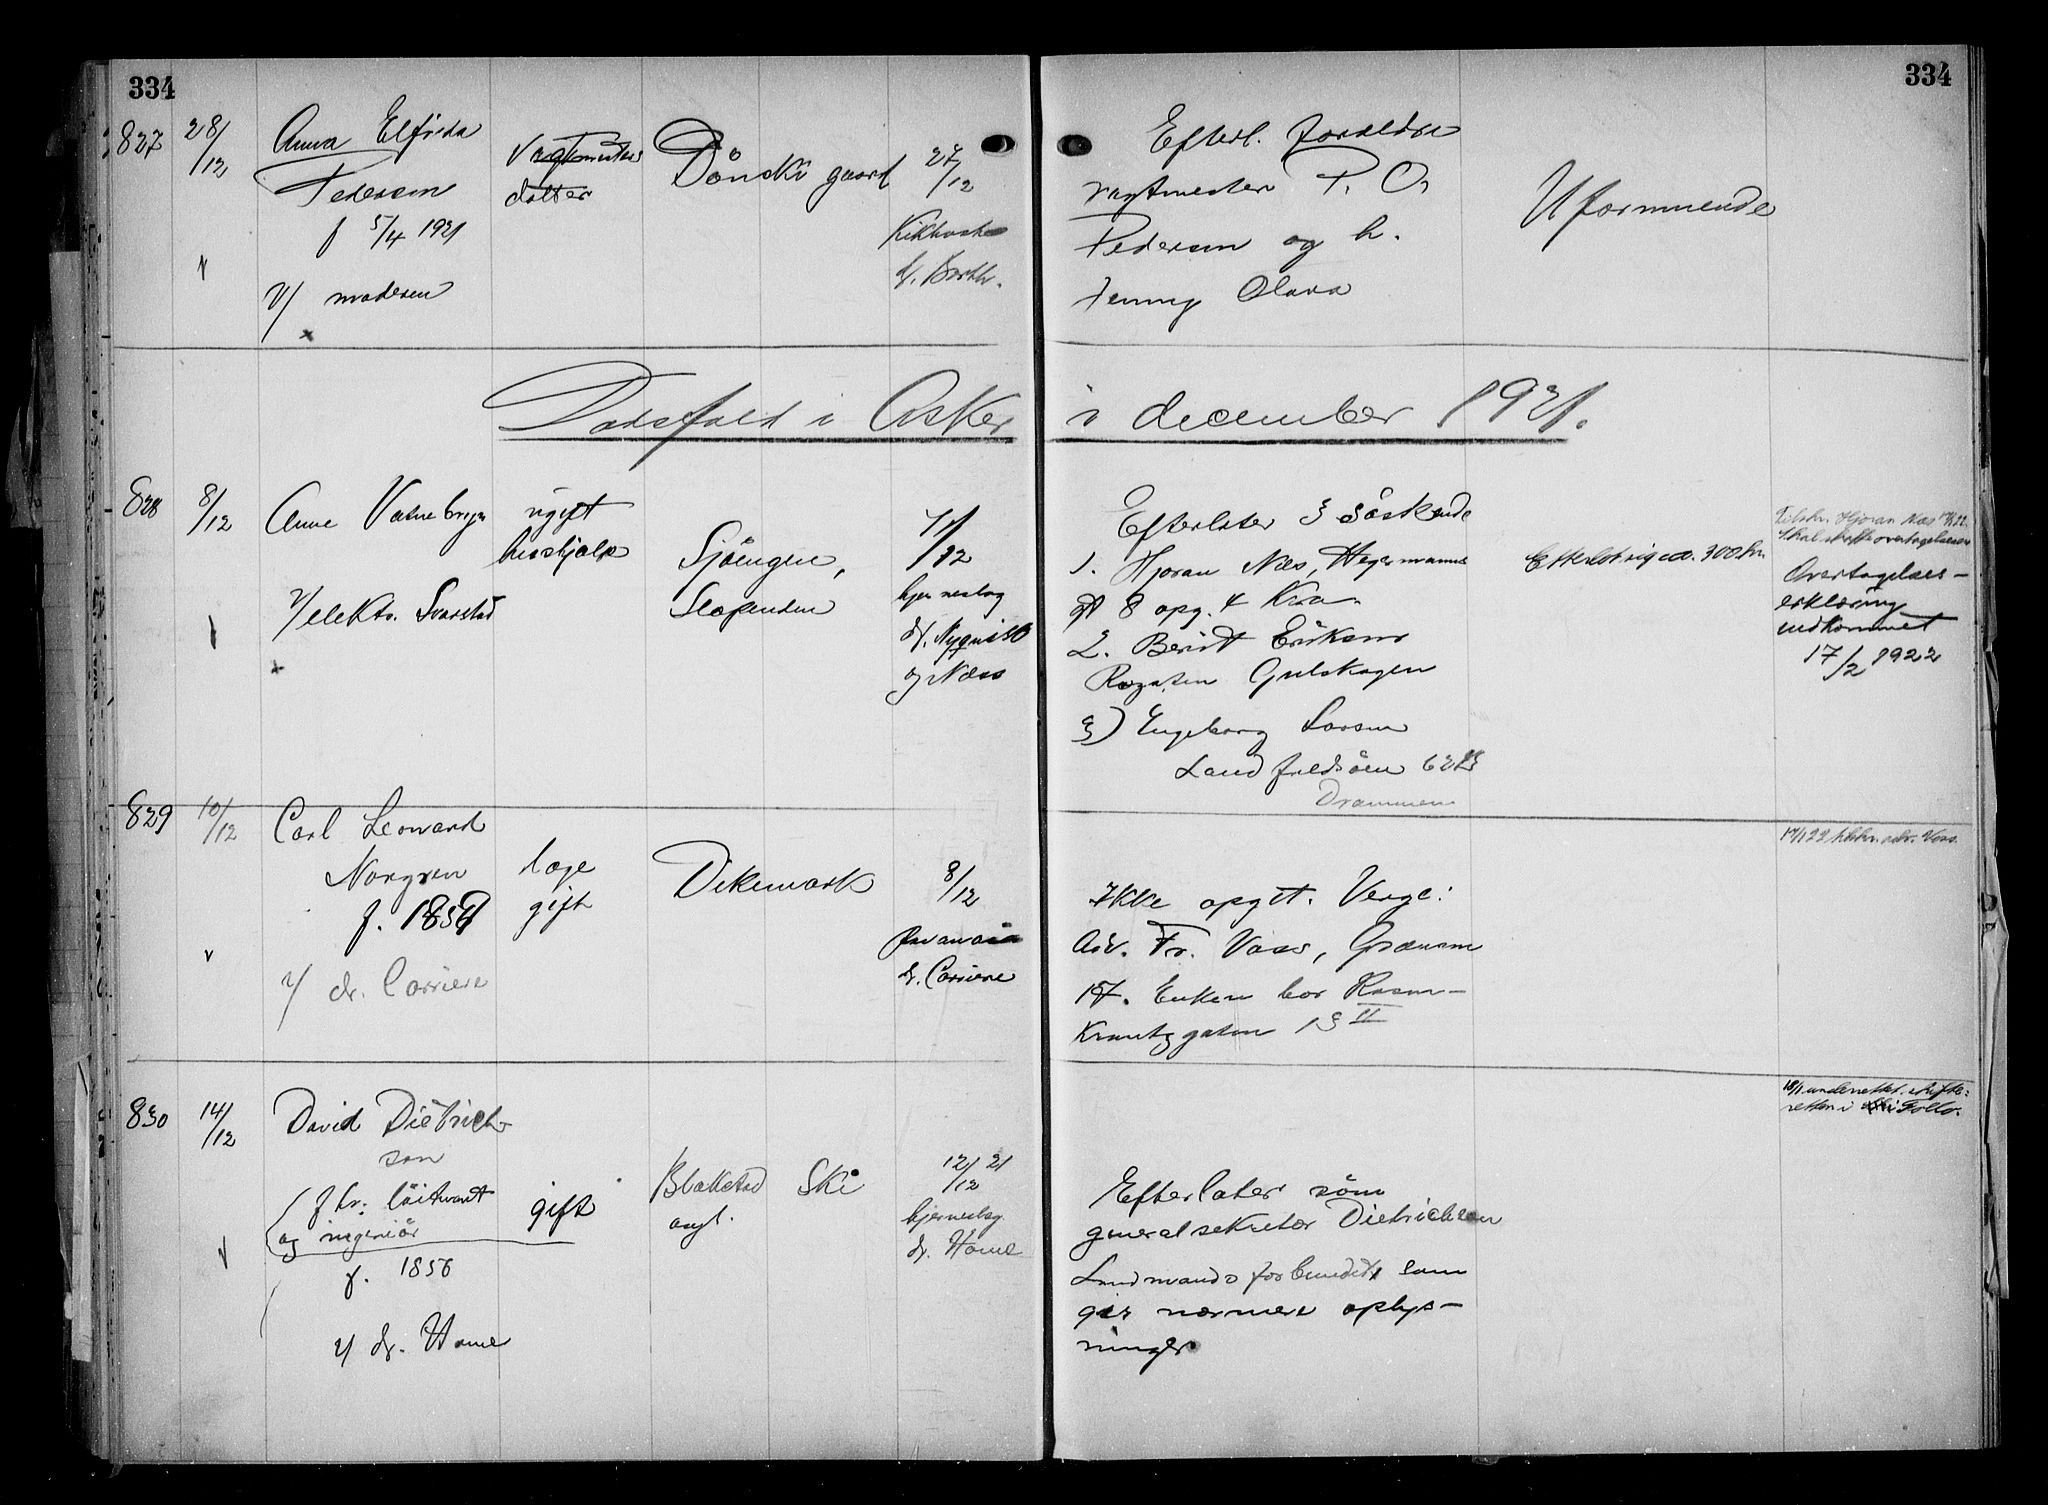 334
334
827
28/12
Anna Elfrida
Pedersen
f 5/4 1921
V/ moderen
Vagtmesters
datter
Dønski gaard
27/12
Kikhoste
dr. Barth.
Efterl. forældre
vagtmester P. O.
Pedersen og h.
Jenny Olava
Uformuende
Dødsfald i Asker i december 1921.
828
8/12
Anne Vatnebryn
V/ elektr. Svarstad
ugift
hushjælp
Sjøengen,
Slependen
7/12
hjerneslag
dr. Nyquist
og Næss
Efterlater 3 søskende
1. Hjøran Næs, Hegermanns
gt 8 opg. 4 Kra.
2. Berit Eriksen
Gulskogen
3) Engeborg Larsen
Landfaldsøen
Drammen
Efterlot sig ca. 300 kr.
Tilskr. Hjøran Næs
Overtagelses-
erklæring
indkommet
17/2 1922
829
10/12
Carl Leonard
Norgren
V/ dr. Carriere
læge
gift
Dikemark
8/12
dr. Carriere
Ikke opgit. Verge:
Adv. Fr. Voss, Grænsen
17. Enken bor Rosen-
Krantzgaten 13 II
tilskr. adv. Voss.
830
14/12
David Dietrich-
son
(fhv. løitnant
og ingeniør
f. 1856
V/ dr. Home
gift
Blakstad
asyl.
Ski
12/12 21
hjerneslag
dr. Home
Efterlater søn
generalsekretær Dietrichson
Landmandsforbundet som
gir nærmere oplys-
ninger
18/1 underrettet skifte-
retten i Follo.